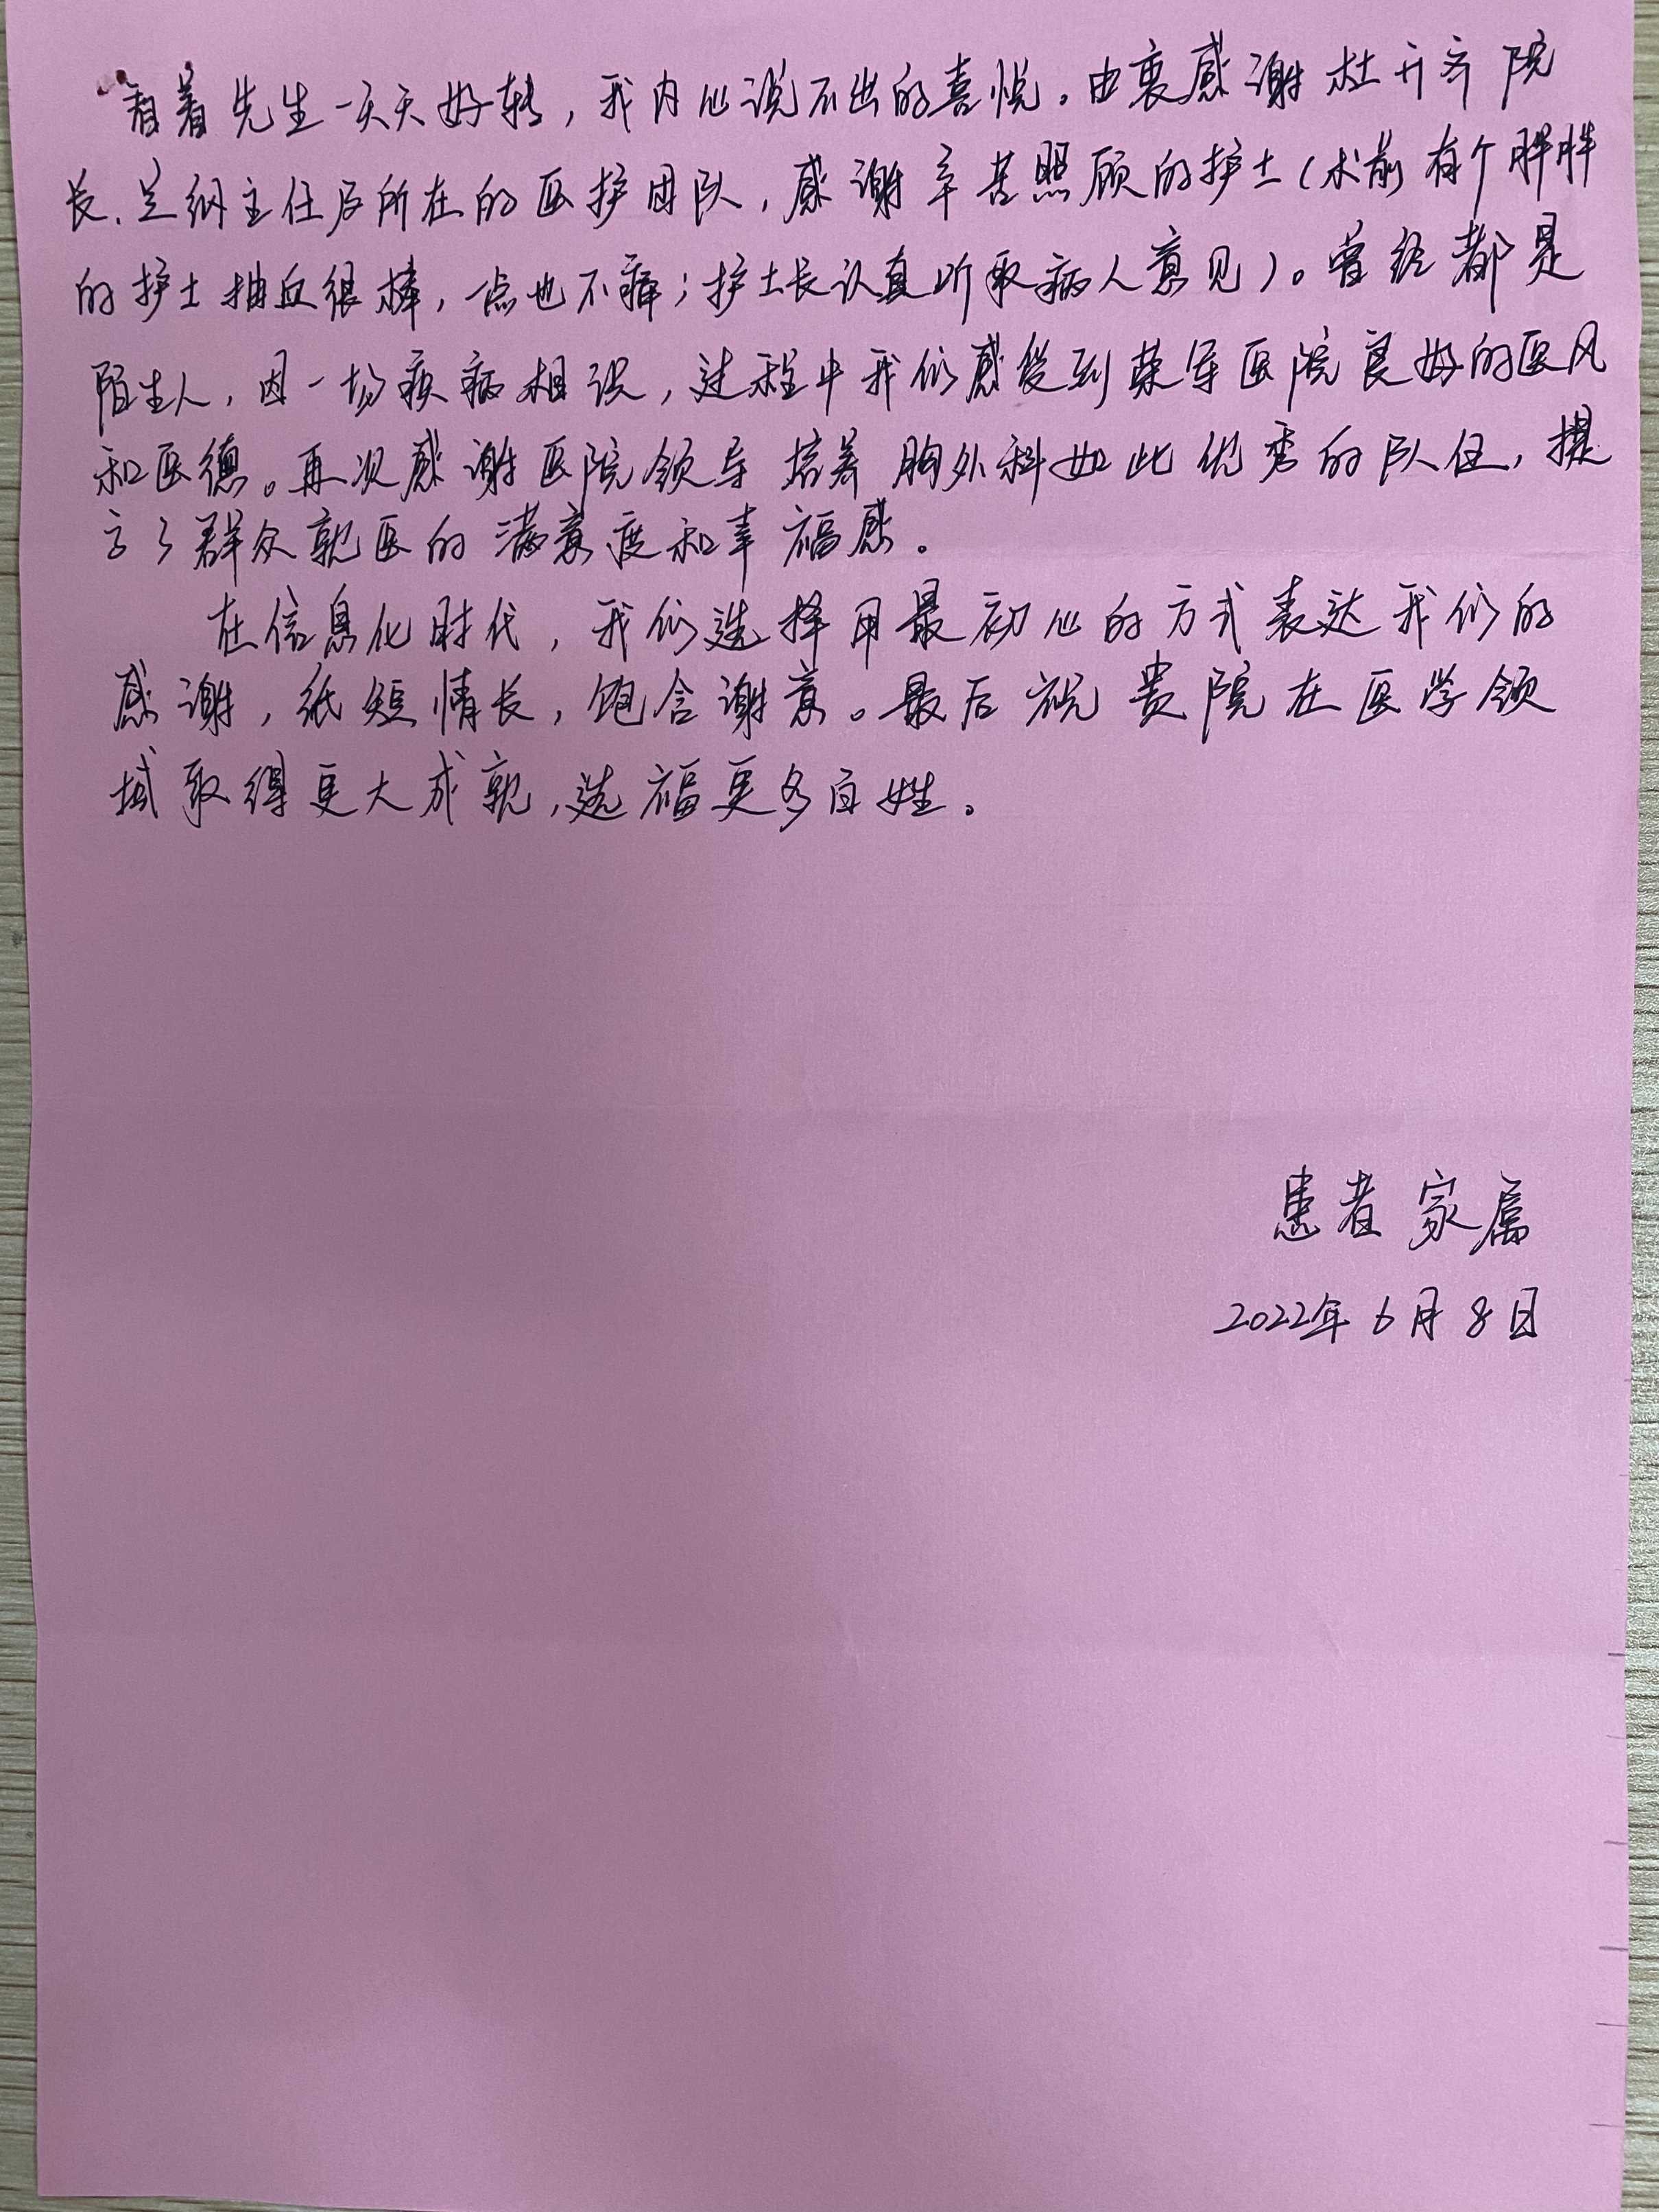 看着先生一天天好转，我内心说不出的喜悦。由衷感谢杜开齐院
长、兰纲主任及所在的医护团队，感谢辛苦照顾的护士（术前有个胖胖
的护士抽血很棒，一点也不痛；护士长认真听取病人意见）。曾经都是
陌生人，因一场疾病相识，过程中我们感受到荣军医院良好的医风
和医德。再次感谢医院领导培养胸外科如此优秀的队伍，提
高了群众就医的满意度和幸福感。
在信息化时代，我们选择用最初心的方式表达我们的
感谢，纸短情长，饱含谢意。最后祝贵院在医学领
域取得更大成就，造福更多百姓。
患者家属
2022年6月8日